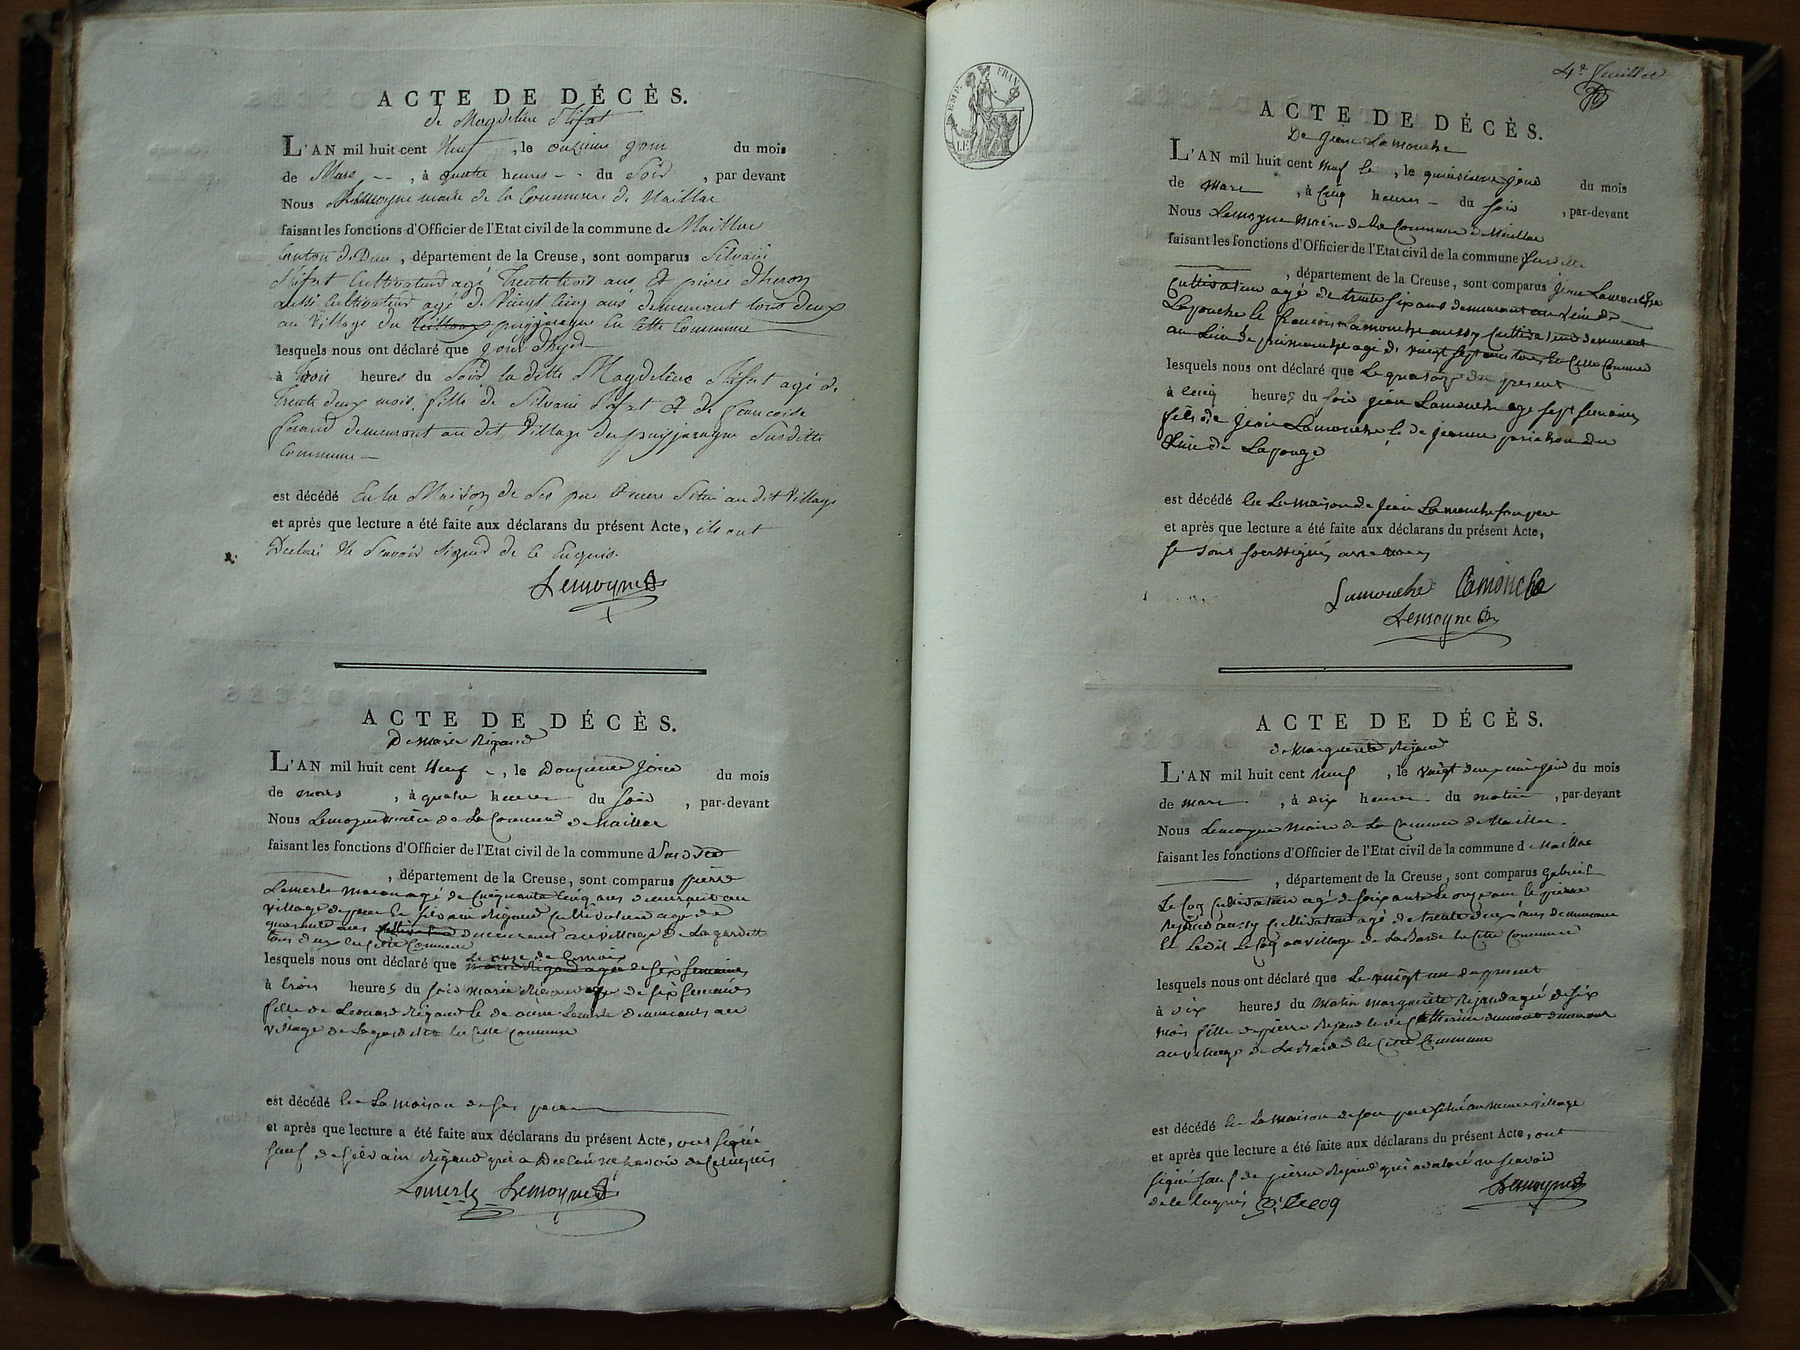 ACTE DE DÉCÈS.
de Magdelène Sifat
L'AN mil huit cent Neuf, le onzieme jour du mois
de Mars, à quatre heures du Soir, par devant
Nous Lemoyne maire de la Commune de Maillac
faisant les fonctions d'Officier de l'Etat civil de la commune de Maillac
Canton de Dun, département de la Creuse, sont comparus Silvain
Sifat Cultivateur agé Trente trois ans Et pierre
aussi Cultivateur agé de Vingt Cinq ans demeurant tous deux
au Village du puyjaragne En Cette Commune
lesquels nous ont déclaré que
à trois heures du Soir la ditte Magdelène Sifat agé de
trente deux mois, fille de Silvain Sifat Et de francoise
demeurant au dit Village du puyjaragne Susditte
Commune
est décédé En la Maison de Ses pere & mere Situé au dit Village
et après que lecture a été faite aux déclarans du présent Acte, ils ont
Declaré Ne Scavoir Signer de ce Enquis.
Lemoyne
ACTE DE DÉCÈS.
De marie Rigaud
L'AN mil huit cent Neuf, le Douzieme jour du mois
de mars, à quatre heures du Soir, par-devant
Nous Lemoyne maire de La Commune de Maillac
faisant les fonctions d'Officier de l'Etat civil de la commune d Susditte
, département de la Creuse, sont comparus pierre
Lamerle macon agé de Cinquante Cinq ans demeurant au
village de Et Silvain Rigaud Cultivateur agé de
quarante ans Cultivateur demeurant au village de Lagardette
tous deux En Cette Commune
lesquels nous ont déclaré que le onze de Ce mois
marie Rigaud agée de Six Semaines
à trois heures du Soir marie Rigaud agée de Six Semaines
fille de Leonard Rigaud Et de anne Lamerle demeurant au
village de Lagardette En Cette Commune
est décédé En La maison de Son pere
et après que lecture a été faite aux déclarans du présent Acte, ont Signé
Sauf de Silvain Rigaud qui a Declaré ne Savoir de Ce Enquis
Lamerle Lemoyne
4e feuillet
EMP. FRAN
ACTE DE DÉCÈS.
De Jean Lamouche
L'AN mil huit cent Neuf, le quinzieme jour du mois
de mars, à Cinq heures du Soir, par-devant
Nous Lemoyne Maire de La Commune de Maillac
faisant les fonctions d'Officier de l'Etat civil de la commune Susditte
, département de la Creuse, sont comparus Jean Lamouche
Cultivateur agé de trente Six ans demeurant au Lieu de
Et francois Lamouche aussy Cultivateur demeurant
au Lieu de agé de vingt Sept ans tous En Cette Commune
lesquels nous ont déclaré que Le quatorze du present
à Cinq heures du Soir Jean Lamouche agé Sept Semaines
fils de Jean Lamouche Et de Jeanne du
Lieu de Laronge
est décédé En La maison de Jean Lamouche Son pere
et après que lecture a été faite aux déclarans du présent Acte,
Se Sont Soussignés avec nous
Lamouche Lamouche
Lemoyne
ACTE DE DÉCÈS.
de Marguerite Rejaud
L'AN mil huit cent Neuf, le vingt deuxieme jour du mois
de mars, à dix heures du matin, par-devant
Nous Lemoyne Maire de La Commune de Maillac
faisant les fonctions d'Officier de l'Etat civil de la commune d Maillac
, département de la Creuse, sont comparus Gabriel
Le Coq Cultivateur agé de Soixante Et onze ans Et pierre
Rejaud aussy Cultivateur agé de trente deux ans demeurant
Et Ledit Le Coq au village de La Barde En Cette Commune
lesquels nous ont déclaré que Le vingt un du present
à dix heures du Matin marguerite Rejaud agée de Six
mois fille de pierre Rejaud Et de Catherine dumont demeurant
au village de La Barde En Cette Commune
est décédé En La maison de Son pere Situé au meme village
et après que lecture a été faite aux déclarans du présent Acte, ont
Signé Sauf de pierre Rejaud qui a declaré ne Scavoir
de Ce Enquis G. Lecoq Lemoyne